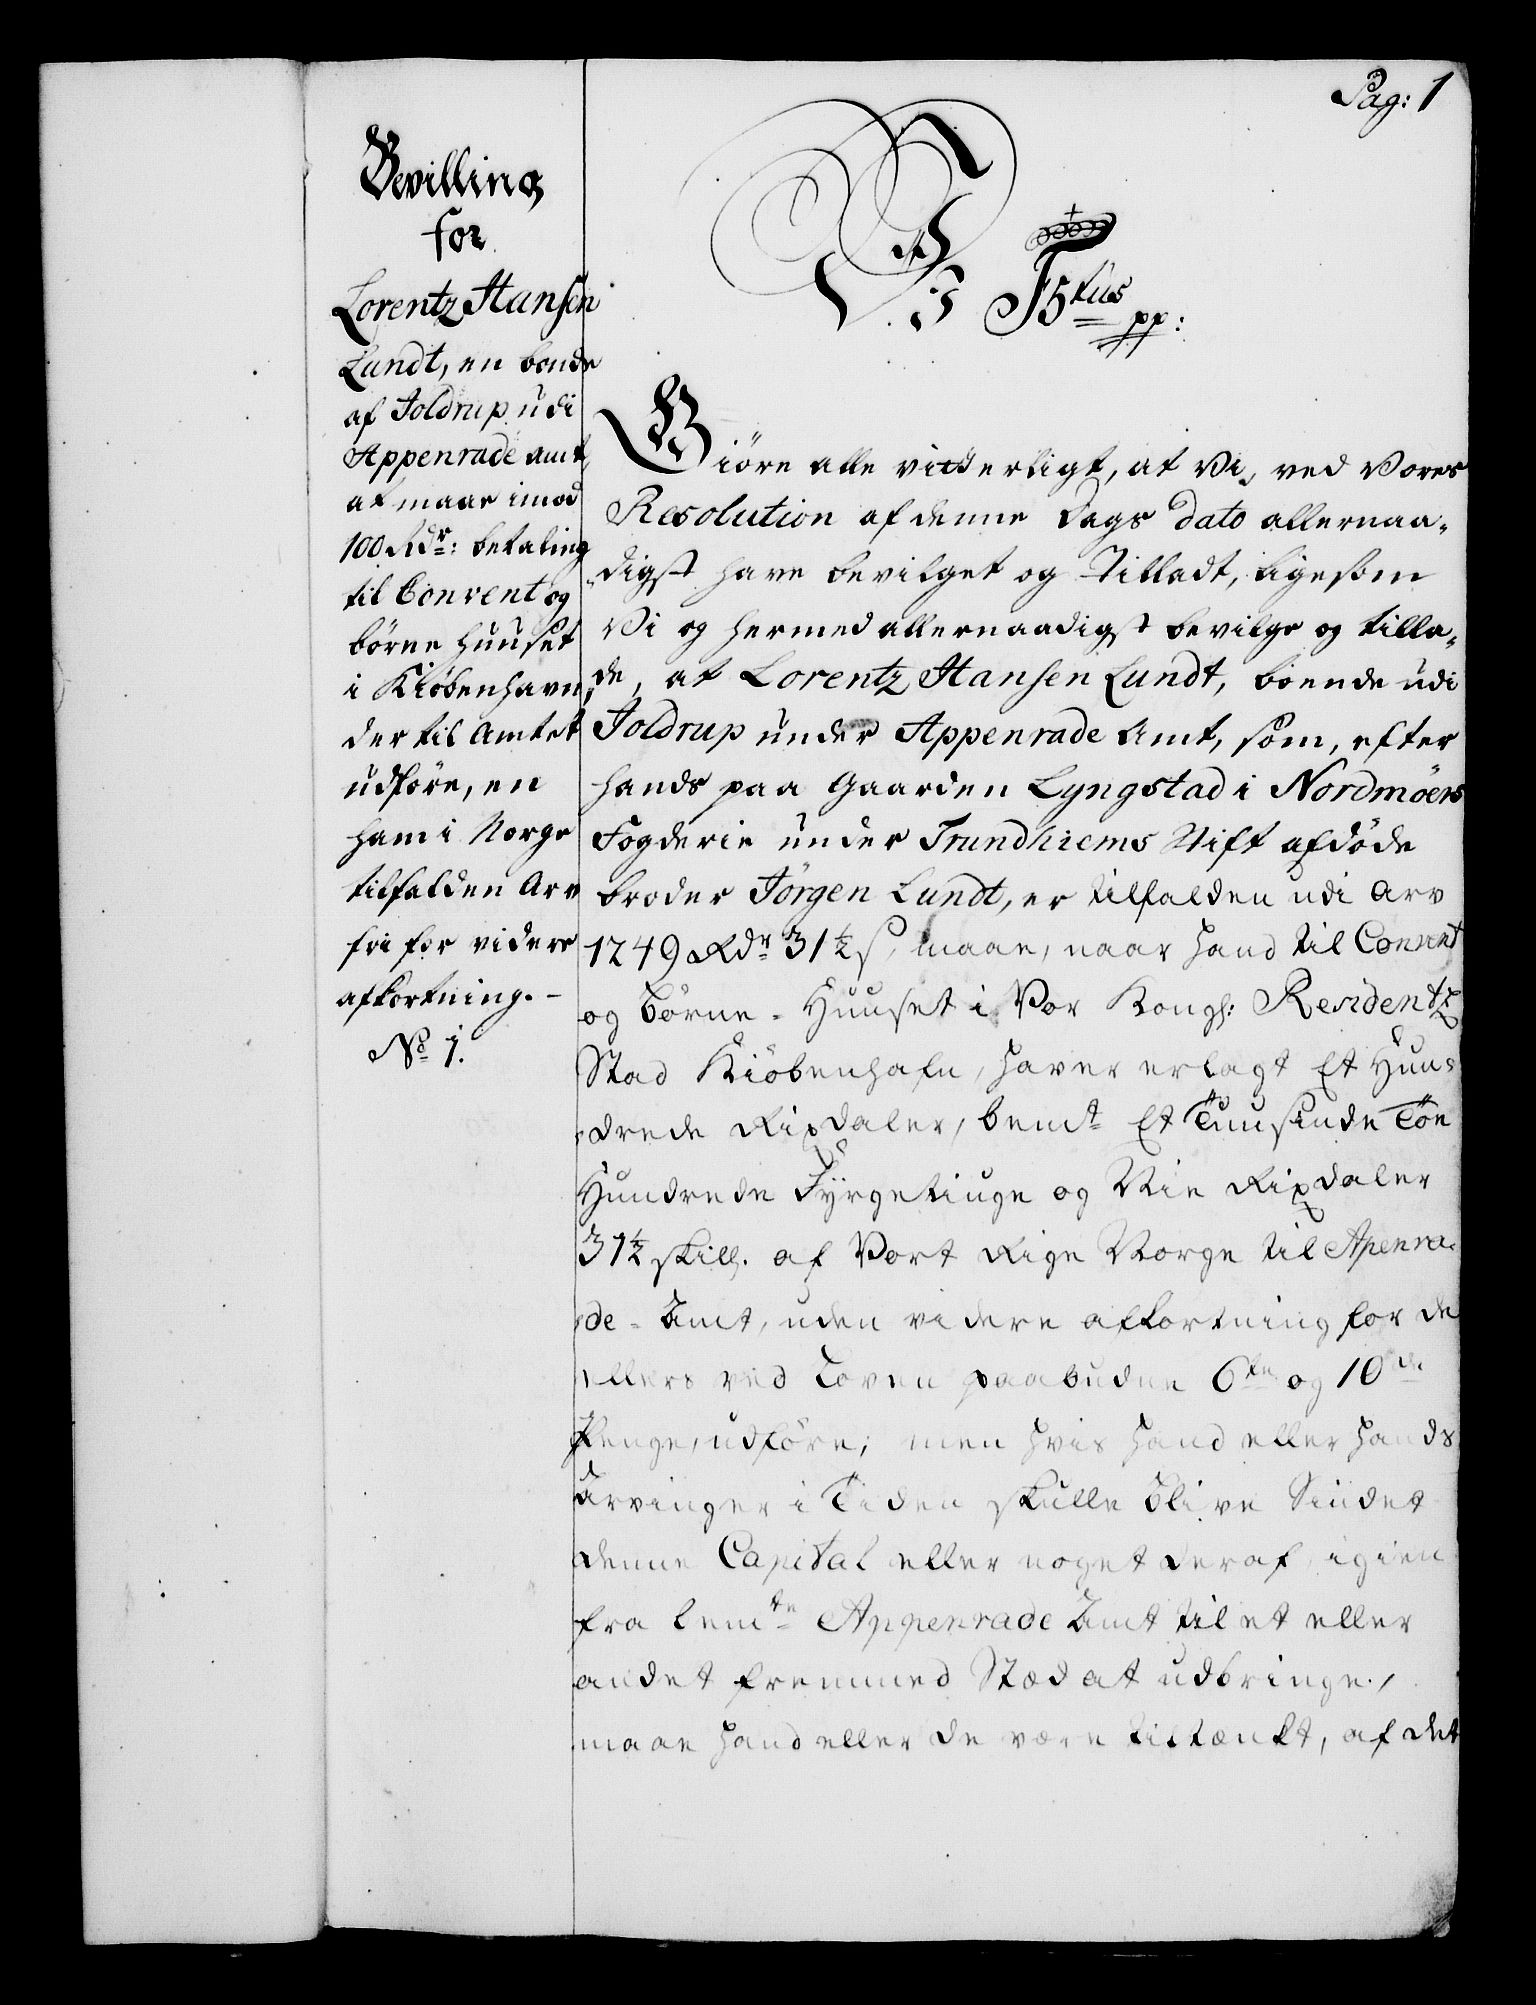 Pag: 1
Bevilling
for
Lorentz Hansen
Lundt, en bonde
af Joldrup udi
Appenrade amt,
at maae imod
100 Rdr: betaling
til Convent og
börne Huuset
i Kiöbenhavn,
der til Amtet
udföre, en
ham i Norge
tilfalden Arv
fri for videre
afkortning. –
No 1.
Vi F5tus pp:
Giöre alle vitterligt, at Vi, ved Vores
Resolution af denne Dags dato allernaa-
digst have bevilget og Tilladt, ligesom
Vi og hermed allernaadigst bevilge og tilla-
de, at Lorentz Hansen Lundt, boende udi
Joldrup under Appenrade Amt, som, efter
hands paa Gaarden Lyngstad i Nordmöers
Fogderie under Trundhiems Stift afdöde
broder Jörgen Lundt, er tilfalden udi Arv
1249 Rdr 31½ s, maae, naar hand til Convent
og Börne-Huuset i Vor Kongl: Residentz
Stad Kiöbenhafn, haver erlagt Et Hun-
drede Rixdaler, bemt Et Tuusinde Toe
Hundrede Fyrgetiuge og Nie Rixdaler
31½ skill. af Vort Rige Norge til Apenra-
de-Amt, uden videre afkortning for de
ellers ved Loven paabudne 6te og 10de
Penge, udföre; men hvis hand eller hands
Arvinger i Tiden skulle blive Sindet
denne Capital eller noget deraf, igien
fra bemte Appenrade Amt til et eller
andet fremmed Stæd at udbringe,
maae hand eller de være tiltænkt, af det